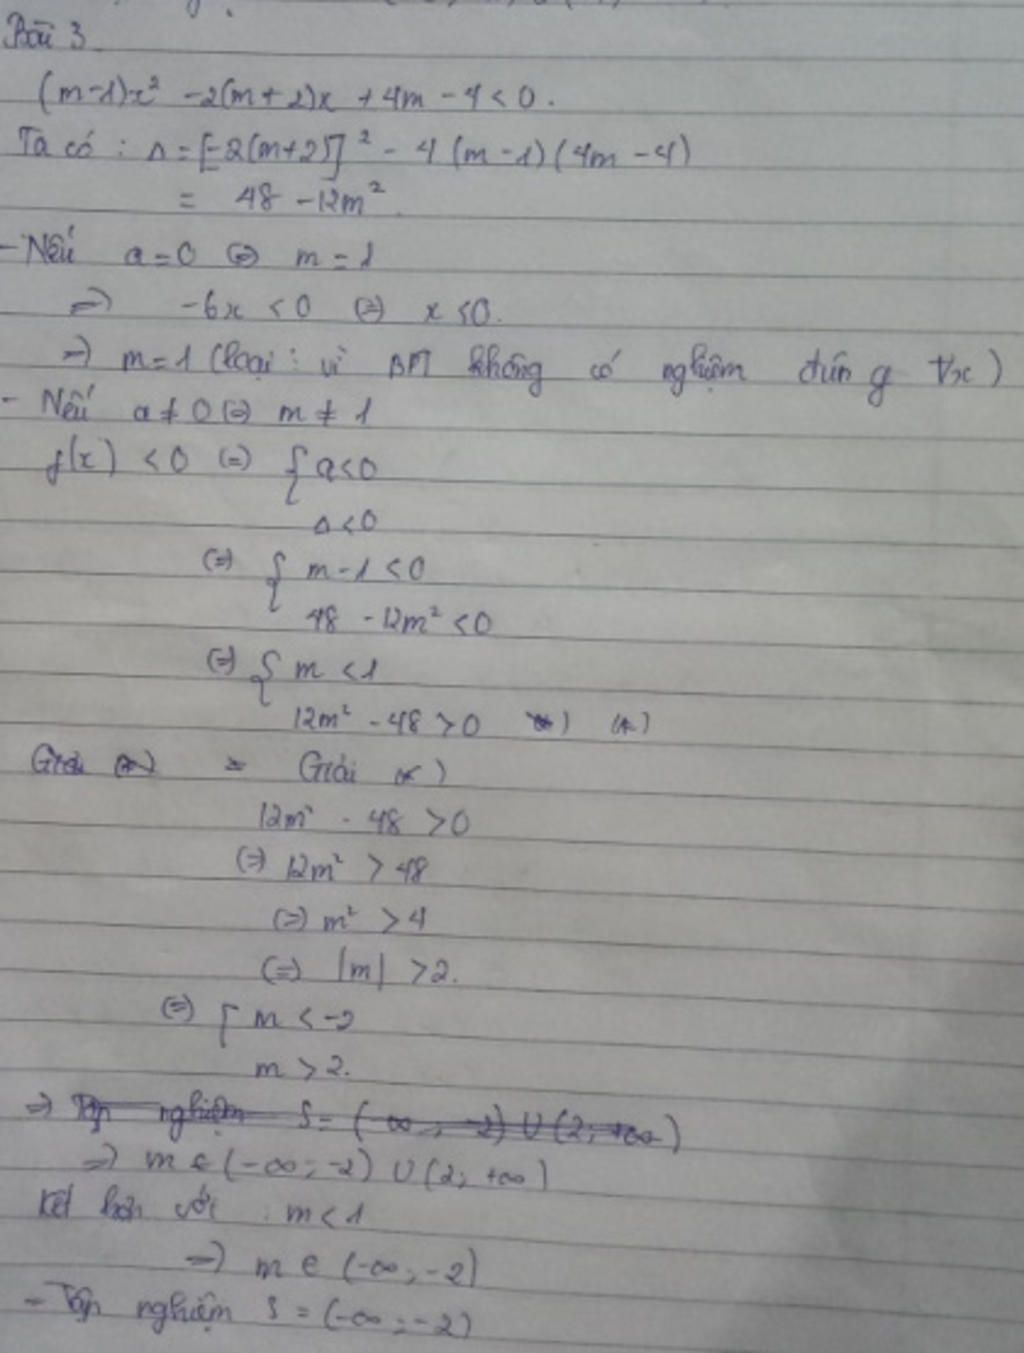 Bài 3
(m-1)x² -2(m+2)x +4m -4<0.
Ta có : Δ = [-2(m+2)]² - 4(m-1)(4m-4)
= 48 -12m².
- Nếu a=0 (=) m=1
=) -6x <0 (=) x<0.
=) m=1 (loại : vì BPT không có nghiệm đúng ∀x)
- Nếu a≠0 (=) m≠1
f(x) <0 (=) { a<0
Δ<0
(=) { m-1<0
48 -12m² <0
(=) { m <1
12m² -48 >0 (*)
Giải (*)
12m² - 48 >0
(=) 12m² > 48
(=) m² >4
(=) |m| >2.
(=) [ m <-2
m >2.
=) Tập nghiệm S= (-∞; -2) ∪ (2; +∞)
=) m ∈ (-∞; -2) ∪ (2; +∞)
Kết hợp với : m<1
=) m ∈ (-∞; -2)
- Tập nghiệm S = (-∞; -2)